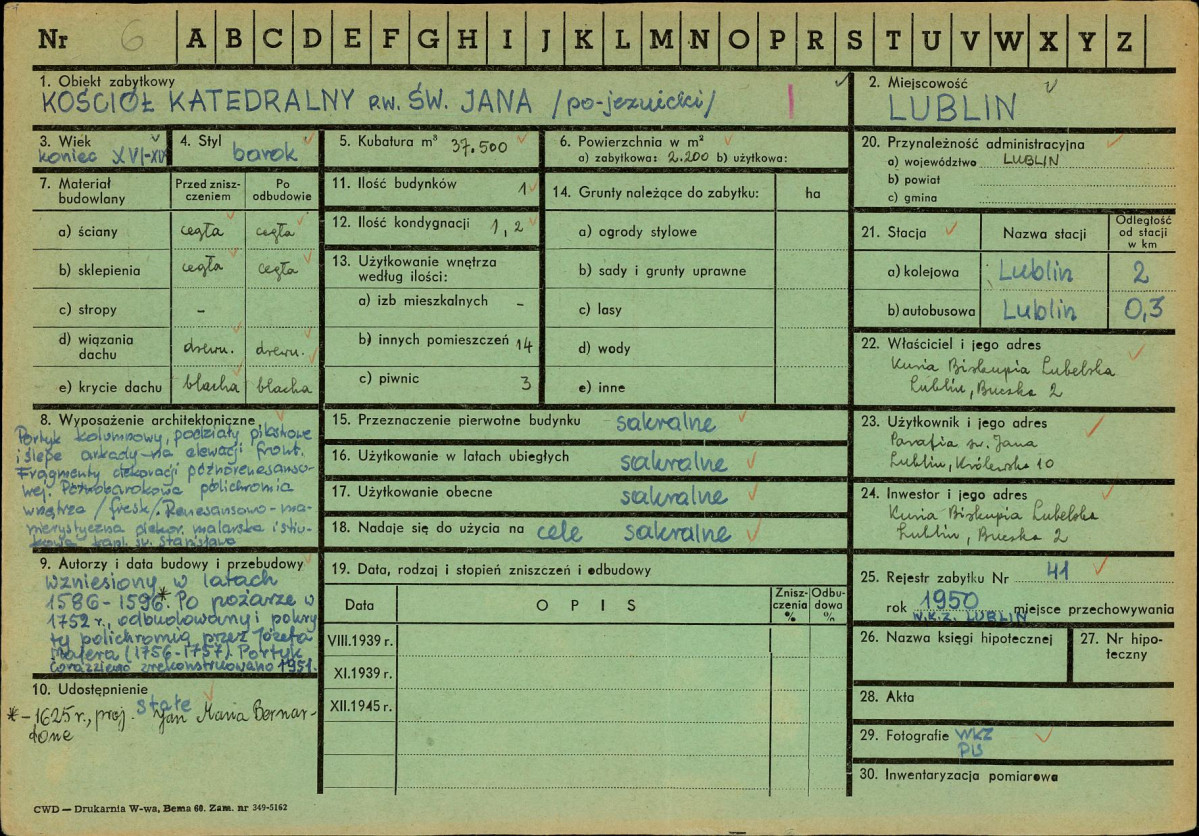 Nr 6 A B C D E F G H I J K L M N O P R S T U V W X Y Z
1. Obiekt zabytkowy
KOŚCIÓŁ KATEDRALNY P.W. ŚW. JANA /po-jezuicki/
2. Miejscowość
LUBLIN
3. Wiek
koniec XVI-XIX
4. Styl
barok
5. Kubatura m³ 37.500
6. Powierzchnia w m²
a) zabytkowa: 2.200 b) użytkowa:
20. Przynależność administracyjna
a) województwo LUBLIN
b) powiat
c) gmina
7. Materiał budowlany
Przed zniszczeniem
Po odbudowie
a) ściany cegła cegła
b) sklepienia cegła cegła
c) stropy -
d) wiązania dachu drewn. drewn.
e) krycie dachu blacha blacha
11. Ilość budynków 1
12. Ilość kondygnacji 1,2
13. Użytkowanie wnętrza według ilości:
a) izb mieszkalnych -
b) innych pomieszczeń 14
c) piwnic 3
14. Grunty należące do zabytku: ha
a) ogrody stylowe
b) sady i grunty uprawne
c) lasy
d) wody
e) inne
21. Stacja
Nazwa stacji
Odległość od stacji w km
a) kolejowa Lublin 2
b) autobusowa Lublin 0,3
22. Właściciel i jego adres
Kuria Biskupia Lubelska
Lublin, Buczka 2
8. Wyposażenie architektoniczne
Portyk kolumnowy, podziały pilastrowe
i ślepe arkady na elewacji front.
Fragmenty dekoracji późnorenesanso-
wej. Późnobarokowa polichromia
wnętrza /fresk/. Renesansowo-ma-
nierystyczna dekor. malarska i stiu-
kowa kapl. św. Stanisława
15. Przeznaczenie pierwotne budynku sakralne
16. Użytkowanie w latach ubiegłych sakralne
17. Użytkowanie obecne sakralne
18. Nadaje się do użycia na cele sakralne
23. Użytkownik i jego adres
Parafia św. Jana
Lublin, Królewska 10
24. Inwestor i jego adres
Kuria Biskupia Lubelska
Lublin, Buczka 2
9. Autorzy i data budowy i przebudowy
Wzniesiony w latach
1586-1596.* Po pożarze w
1752 r., odbudowany i pokry-
ty polichromią przez Józefa
Majera (1756-1757). Portyk
Corazziego zrekonstruowano 1951.
19. Data, rodzaj i stopień zniszczeń i odbudowy
Data
OPIS
Zniszczenia %
Odbudowa %
VIII.1939 r.
XI.1939 r.
XII.1945 r.
25. Rejestr zabytku Nr 41
rok 1950 miejsce przechowywania
W.K.Z. LUBLIN
26. Nazwa księgi hipotecznej
27. Nr hipoteczny
10. Udostępnienie
stałe
* - 1625 r., proj. Jan Maria Bernar-
done
28. Akta
29. Fotografie WKZ
PIS
30. Inwentaryzacja pomiarowa
CWD — Drukarnia W-wa, Bema 60. Zam. nr 349-5162